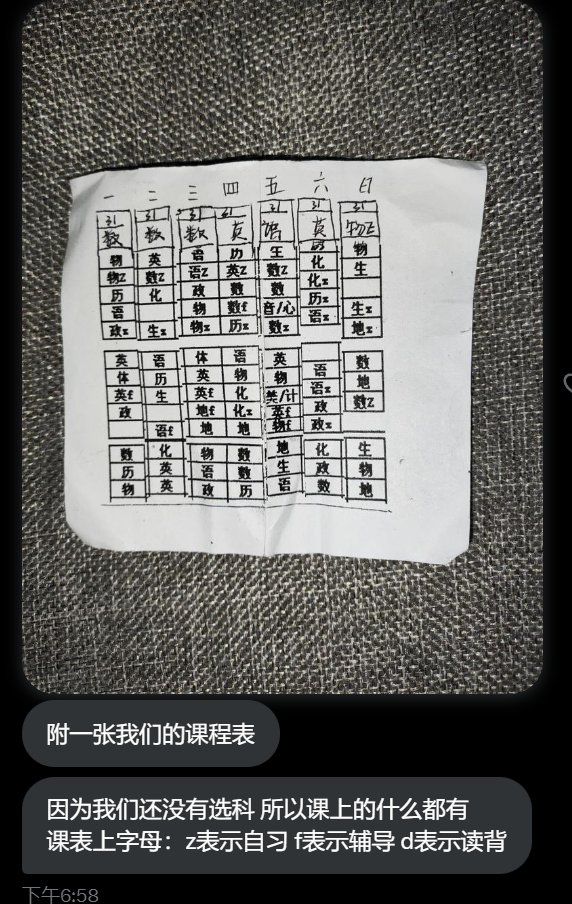 一 二 三 四 五 六 日
31 31 31 31 31 31
数 数 数 英 语 英
物 英 语 历 生 历 物
物Z 数Z 语Z 英Z 数Z 化 生
历 化 政 数 数 化z
语 物 数f 音/心 历z 生z
政z 生z 物z 历z 数z 语z 地z
英 语 体 语 英 数
体 历 英 物 物 语 地
英f 生 英f 化 类/计 语z 数Z
政 地f 化z 英f 政
语f 地 地 物f 政z
数 化 物 数 地 化 生
历 英 语 数 生 政 物
物 英 政 历 语 数 地
附一张我们的课程表
因为我们还没有选科 所以课上的什么都有
课表上字母：z表示自习 f表示辅导 d表示读背
下午6:58